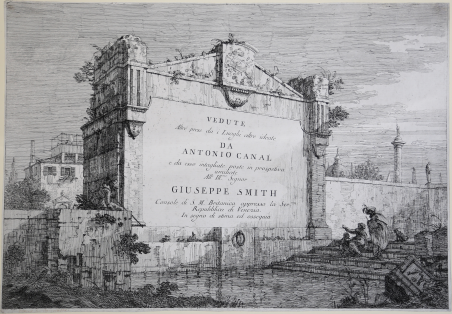 VEDUTE
Altre prese da i Luoghi altre ideate
DA
ANTONIO CANAL
e da esso intagliate poste in prospetiva
umiliate
All Ill.mo Signor
GIUSEPPE SMITH
Console di S. M. Britanica appresso la Ser.ma
Republica di Venezia
In segno di stima ed ossequio